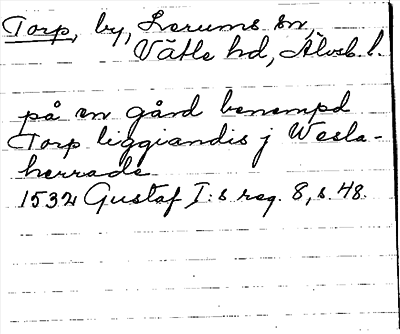 Torp, by, Lerums sn,
Vätle hd, Älvsb. l.
på en gård benempd
Torp liggiandis j Wesla-
herrade
1532 Gustaf I:s reg. 8, s. 48.